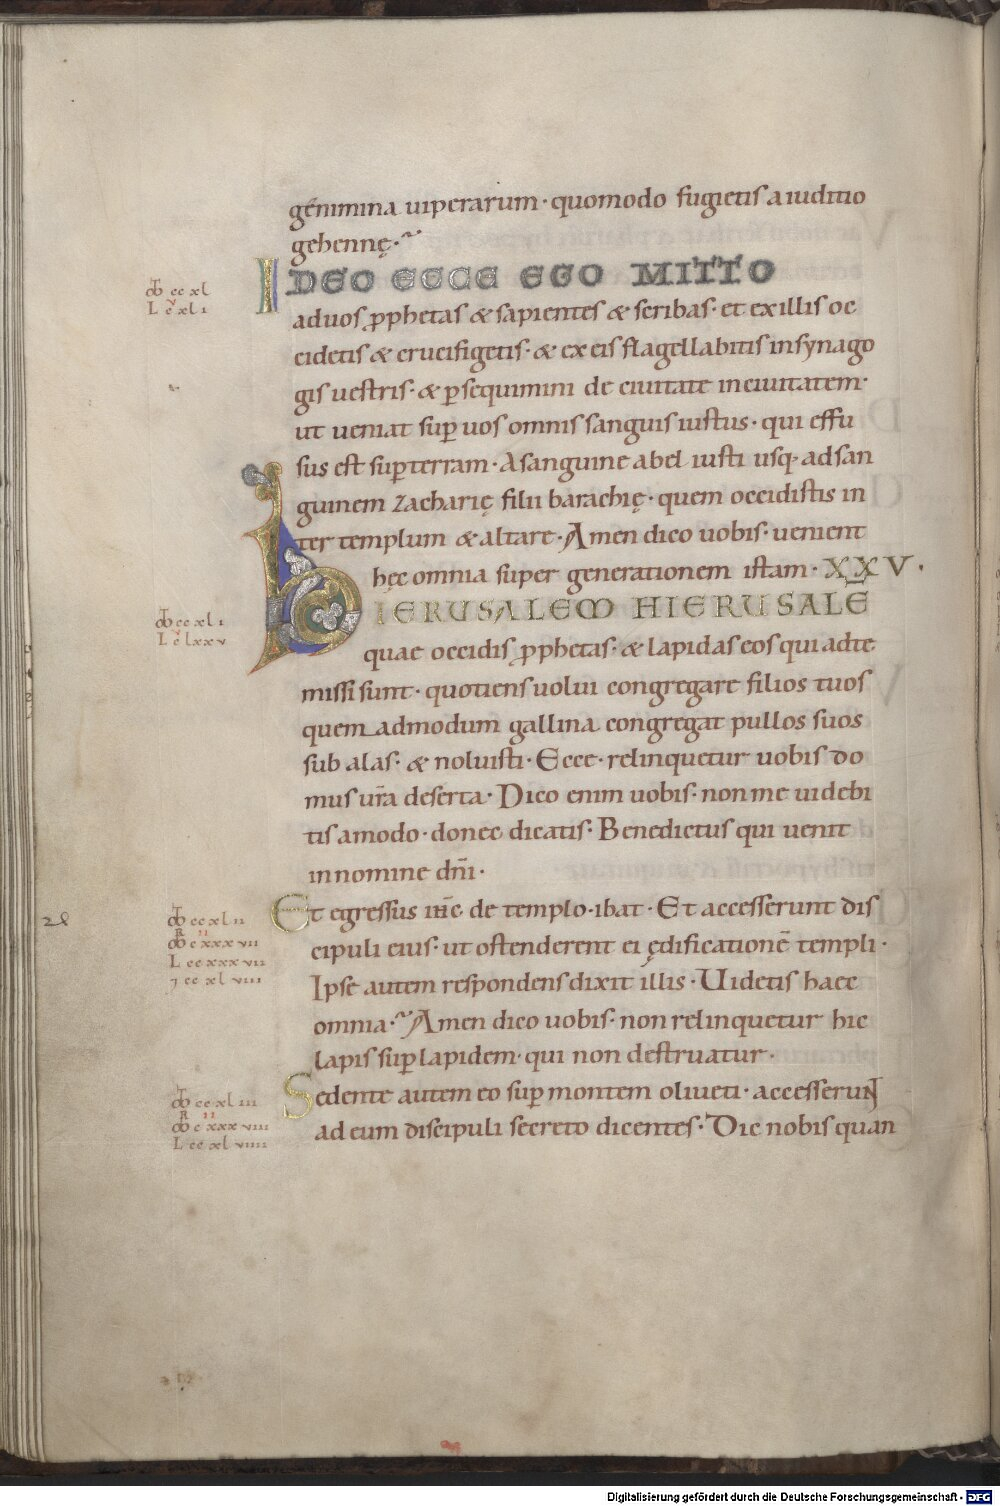 genimina uiperarum · quomodo fugietis a iuditio
gehennę ·
IDEO ECCE EGO MITTO
ad uos p̄phetas & sapientes & scribas · et ex illis oc
cidetis & crucifigetis · & ex eis flagellabitis in synago
gis uestris · & p̱sequimini de ciuitate in ciuitatem ·
ut ueniat sup̱ uos omnis sanguis iustus · qui effu
sus est sup̱ terram · A sanguine abel iusti usq; ad san
guinem zacharię filii barachię · quem occidistis in
ter templum & altare · Amen dico uobis · uenient
hęc omnia super generationem istam · XXV ·
HIERUSALEM HIERUSALĒ
quae occidis p̄phetas · & lapidas eos qui ad te
missi sunt · quotiens uolui congregare filios tuos
quem admodum gallina congregat pullos suos
sub alas · & noluisti · Ecce · relinquetur uobis do
mus ur̄a deserta · Dico enim uobis · non me uidebi
tis amodo · donec dicatis · Benedictus qui uenit
in nomine dn̄i ·
Et egressus ih̄c de templo · ibat · Et accesserunt dis
cipuli eius · ut ostenderent ei ędificationē templi ·
Ipse autem respondens dixit illis · Uidetis haec
omnia · Amen dico uobis · non relinquetur hic
lapis sup̱ lapidem · qui non destruatur ·
Sedente autem eo sup̱ montem oliueti · accesserunt
ad eum discipuli secreto dicentes · Dic nobis quan
cc xl
L c xl i
cc xl i
L c lxx v
cc xl ii
R ii
c xxx vii
L cc xxx vii
cc xl viii
cc xl iii
R ii
c xxx viii
L cc xl viiii
Digitalisierung gefördert durch die Deutsche Forschungsgemeinschaft - DFG